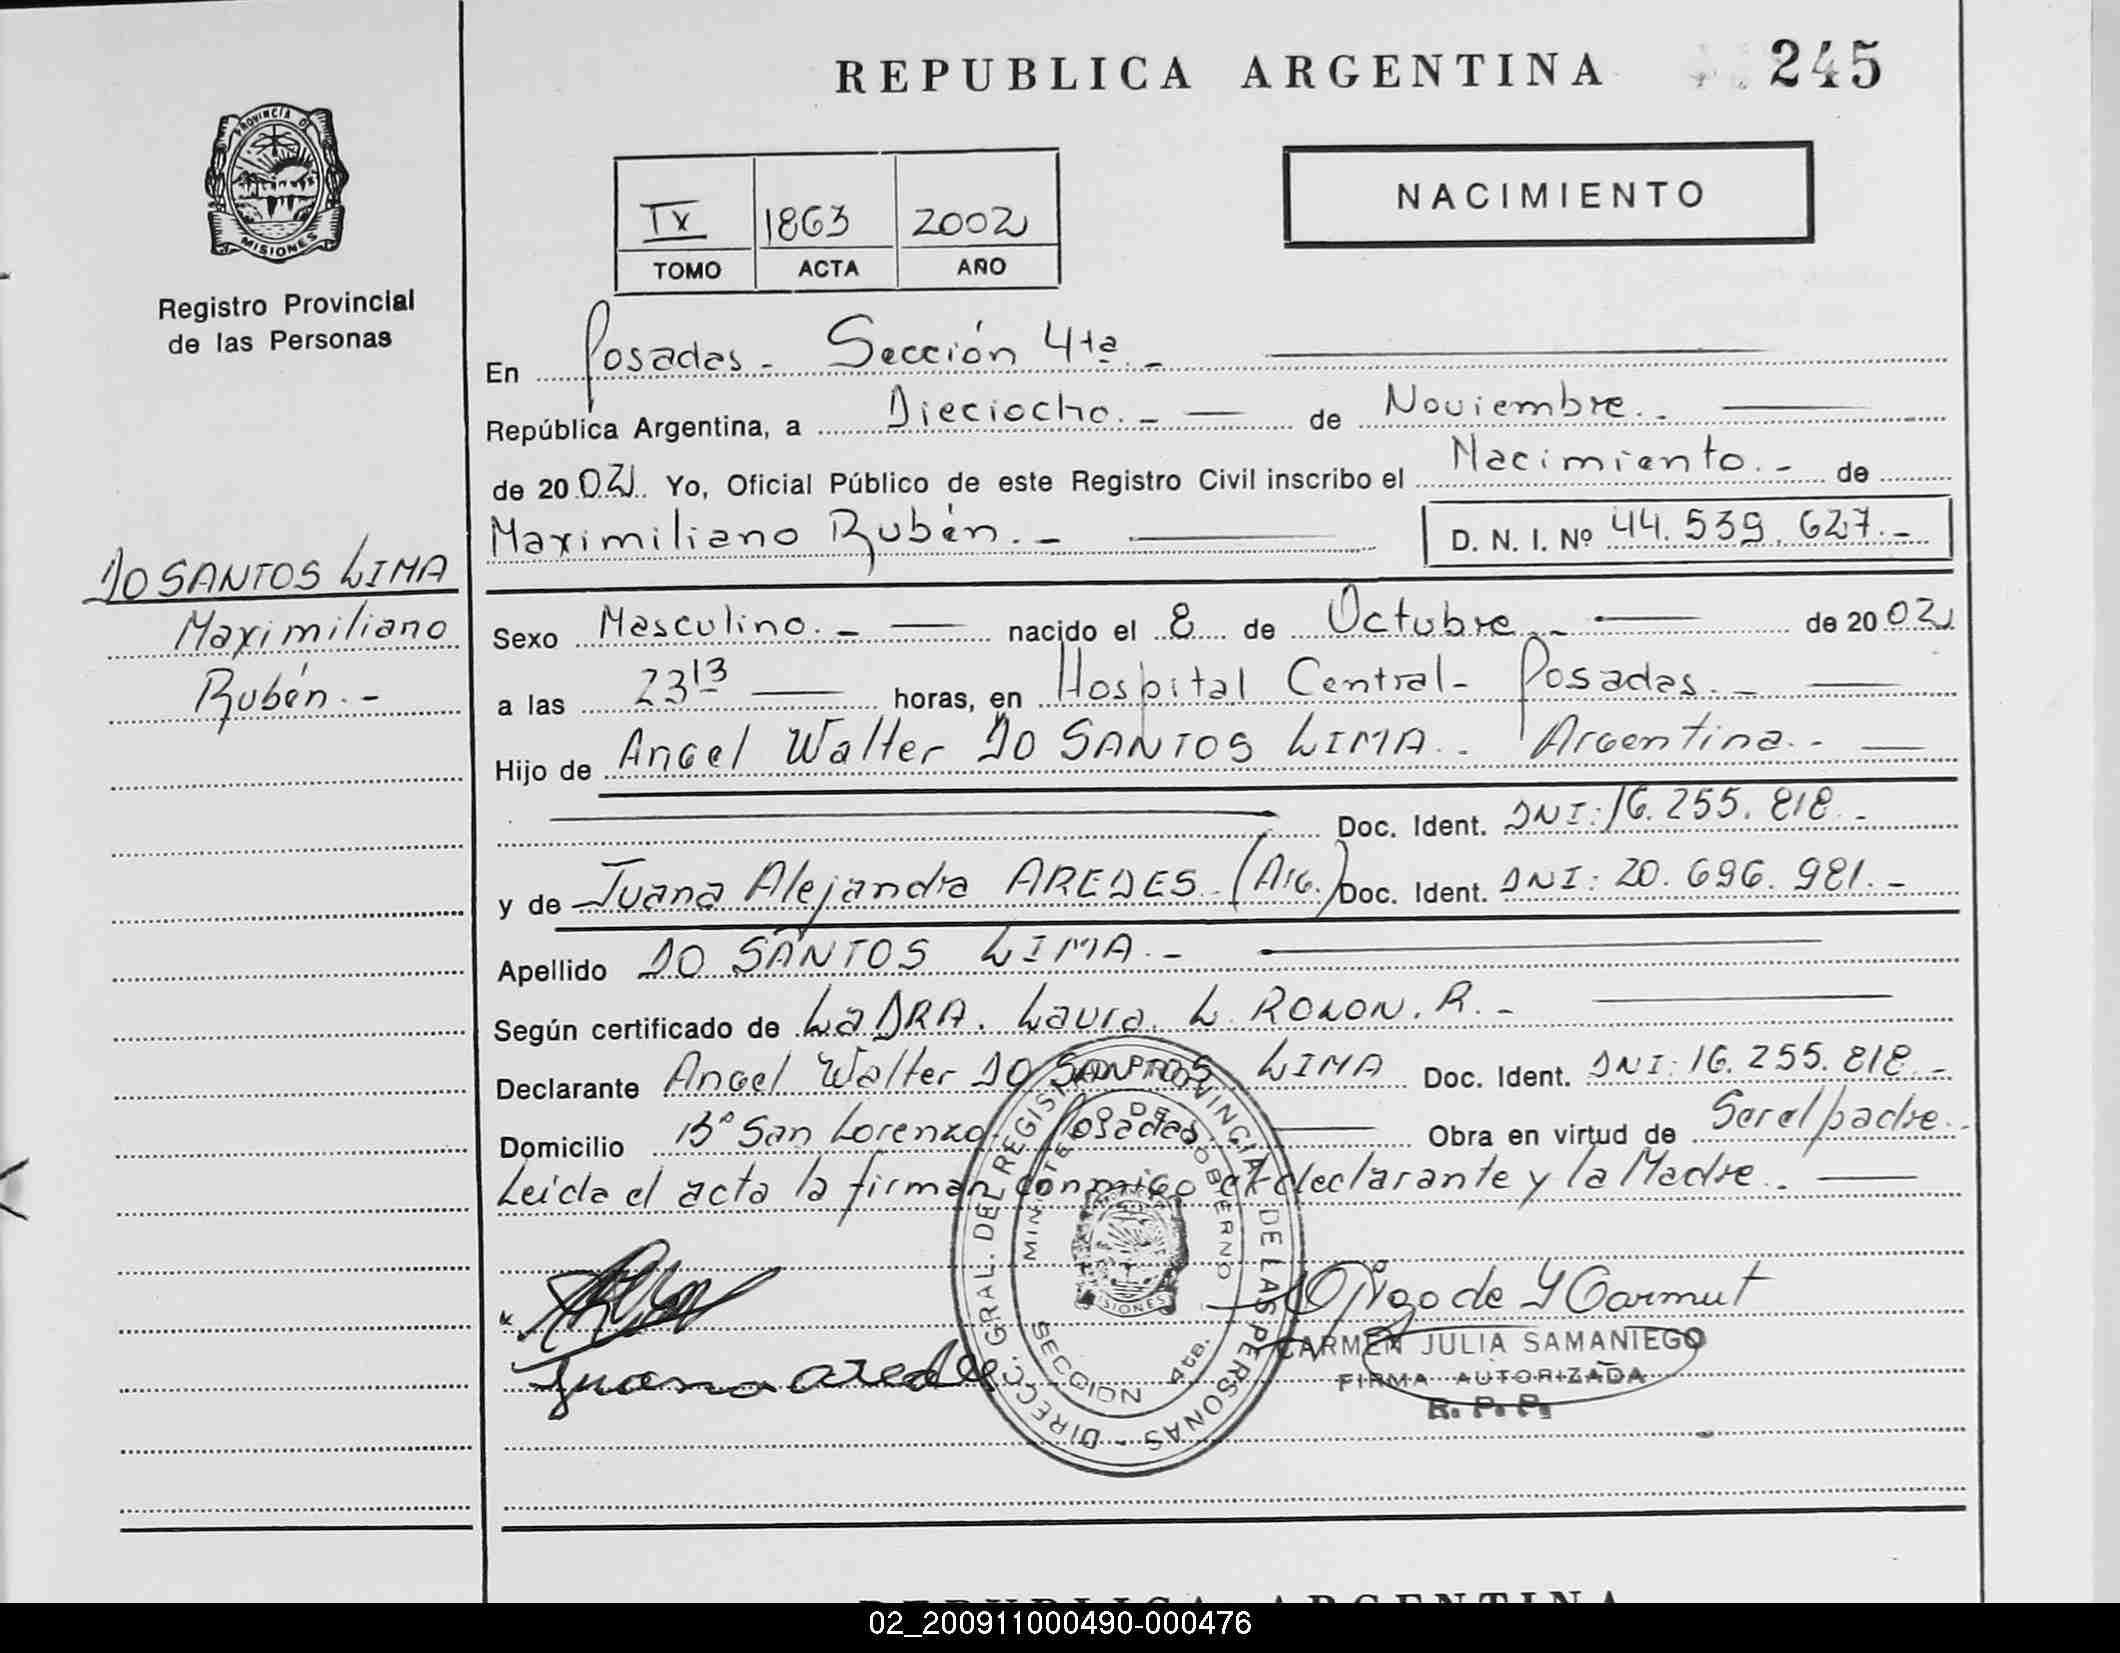 REPUBLICA ARGENTINA 245
PROVINCIA D
MISIONES
Registro Provincial
de las Personas
NACIMIENTO
IX 1863 2002
TOMO ACTA AÑO
En Posadas - Sección 4ta -
República Argentina, a Dieciocho. - de Noviembre. -
de 20 02 Yo, Oficial Público de este Registro Civil inscribo el Nacimiento. - de
Maximiliano Rubén. - D. N. I. Nº 44.539.627. -
DO SANTOS LIMA
Maximiliano
Rubén. -
Sexo Masculino. - nacido el 8 de Octubre. - de 20 02
a las 23 13 horas, en Hospital Central - Posadas. -
Hijo de Angel Walter DO SANTOS LIMA. - Argentina. -
Doc. Ident. DNI: 16.255.818. -
y de Juana Alejandra AREDES. (Arg.) Doc. Ident. DNI: 20.696.981. -
Apellido DO SANTOS LIMA. -
Según certificado de La DRA. Laura. L. ROLON. R. -
Declarante Angel Walter DO SANTOS LIMA Doc. Ident. DNI: 16.255.818. -
Domicilio Bº San Lorenzo Posadas. Obra en virtud de Ser el padre. -
Leida el acta la firman conmigo el declarante y la Madre. -
DIRECC. GRAL. DEL REGISTRO PROVINCIAL DE LAS PERSONAS -
DE GOBIERNO
SECCION 4ta.
MISIONES
Juana aredes
CARMEN JULIA SAMANIEGO
FIRMA AUTORIZADA
R. P. P.
REPUBLICA ARGENTINA
02_200911000490-000476